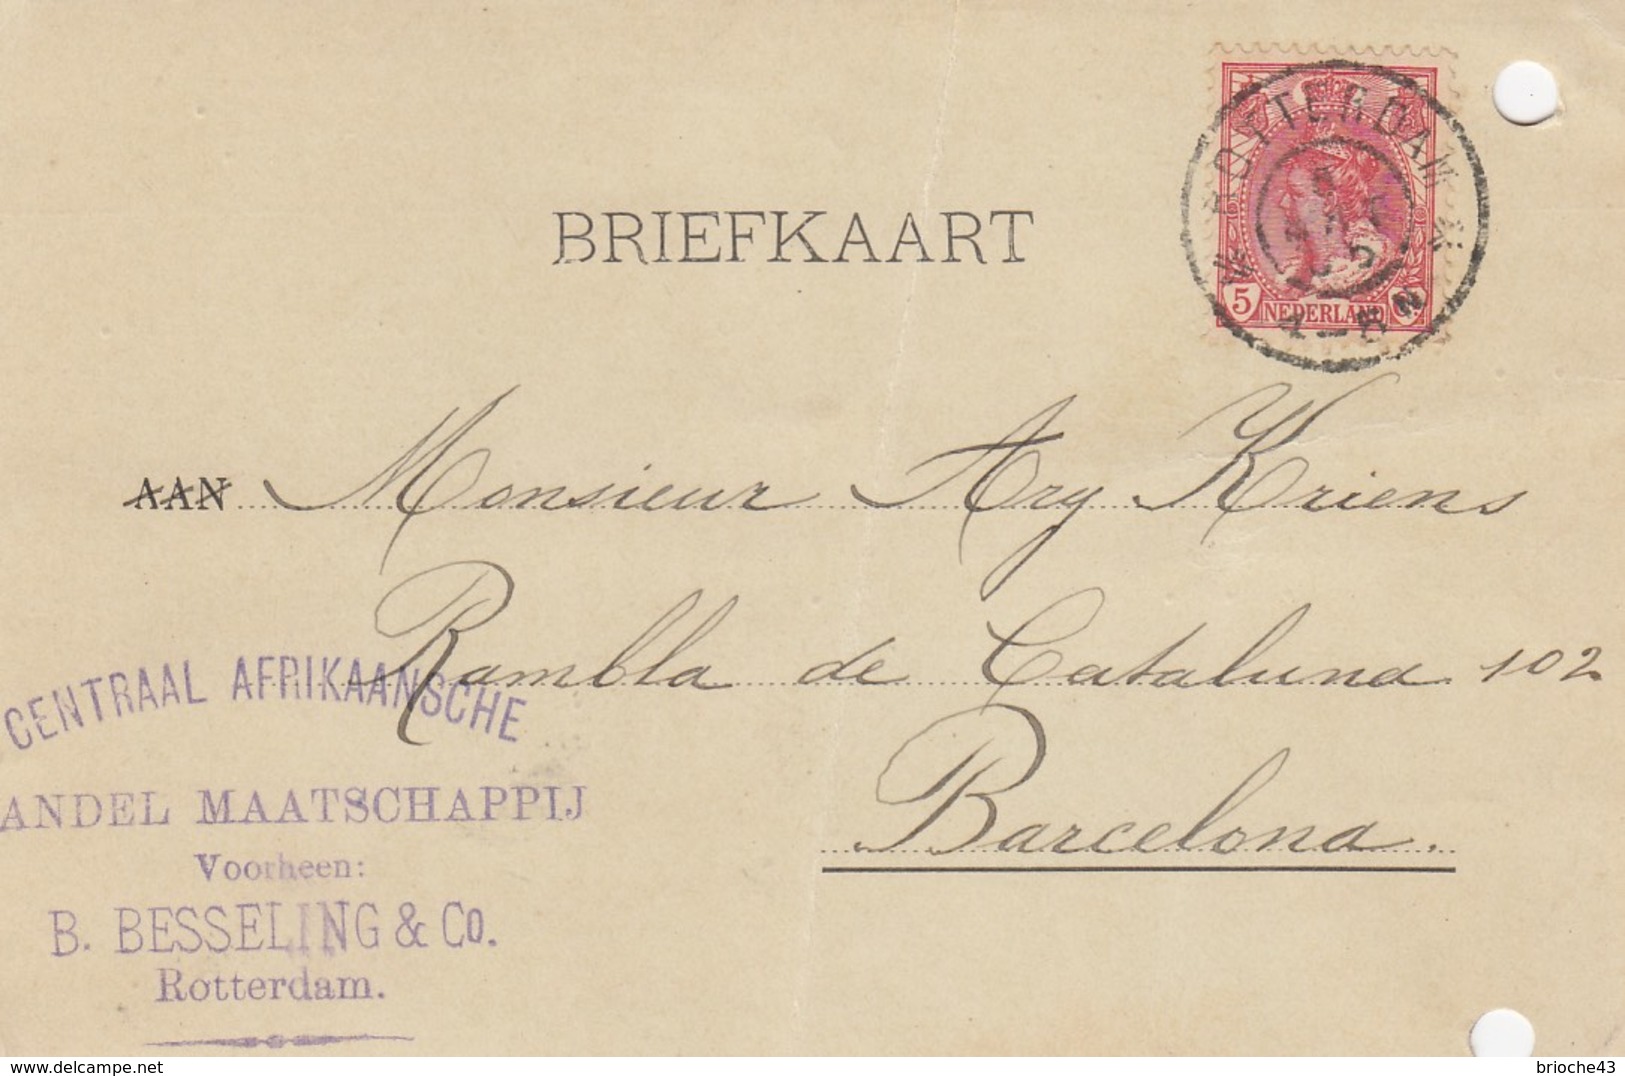 ROTTERDAM
5 NEDERLAND
BRIEFKAART
AAN Monsieur Ary Kriens
Rambla de Cataluna 102
Barcelona.
CENTRAAL AFRIKAANSCHE
ANDEL MAATSCHAPPIJ
Voorheen:
B. BESSELING & Co.
Rotterdam.
delcampe.net
brioche43